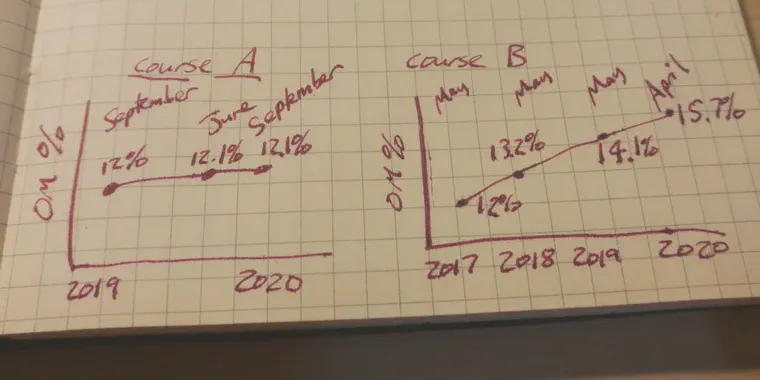 Course A
September
June
September
OM %
12%
12.1%
12.1%
2019
2020
Course B
May
May
May
April
OM %
12%
13.2%
14.1%
15.7%
2017
2018
2019
2020